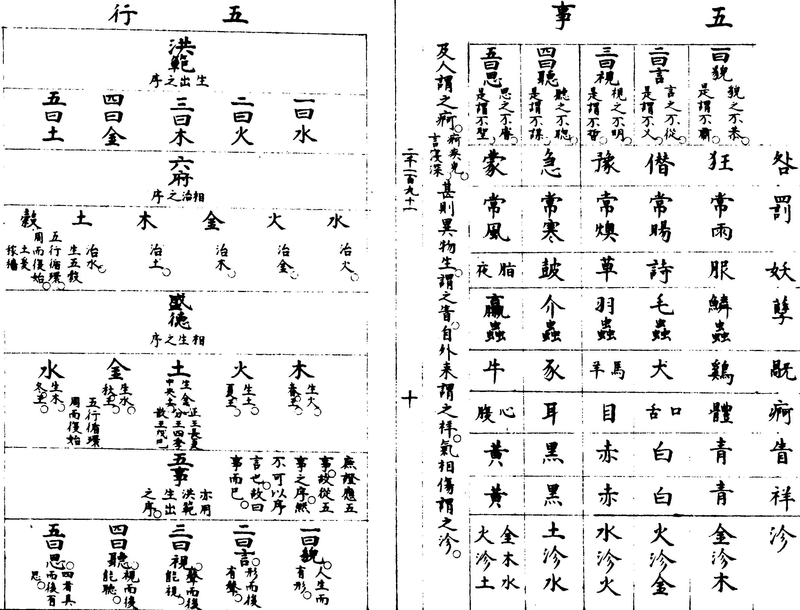 五事
咎罰妖孽㽞痾眚祥沴
一曰貌
貌之不恭是謂不肅
狂
常雨
服
鱗蟲
鷄
體
青
青
金沴木
二曰言
言之不從是謂不乂
僭
常暘
詩
毛蟲
犬
口舌
白
白
火沴金
三曰視
視之不明是謂不哲
豫
常燠
草
羽蟲
馬羊
目
赤
赤
水沴火
四曰聽
聽之不聰是謂不謀
急
常寒
鼓
介蟲
豕
耳
黑
黑
土沴水
五曰思
思之不睿是謂不聖
蒙
常風
脂夜
臝蟲
牛
心腹
黃
黃
金木水火沴土
及人謂之痾痾疾皃言寖深甚則異物生謂之眚自外來謂之祥氣相傷謂之沴
二千一百九十一
十
五行
洪範
生出之序
一曰水
二曰火
三曰木
四曰金
五曰土
六府
相治之序
水治火
火治金
金治木
木治土
土治水
穀
生五穀五行循環周而復始土爰稼穡
盛德
相生之序
木生火春王
火生土夏王
土生金中央土
正王長夏分王四季散王戊己
金生水秋王
水生木冬王
五行循環周而復始
五事
亦用洪範生出之序
庶證應五事故從五事之序然不可以序言也故曰事而已
一曰貌
人生而有形
二曰言
形而後有聲
三曰視
聲而後能視
四曰聽
視而後能聽
五曰思
四者具而後有思